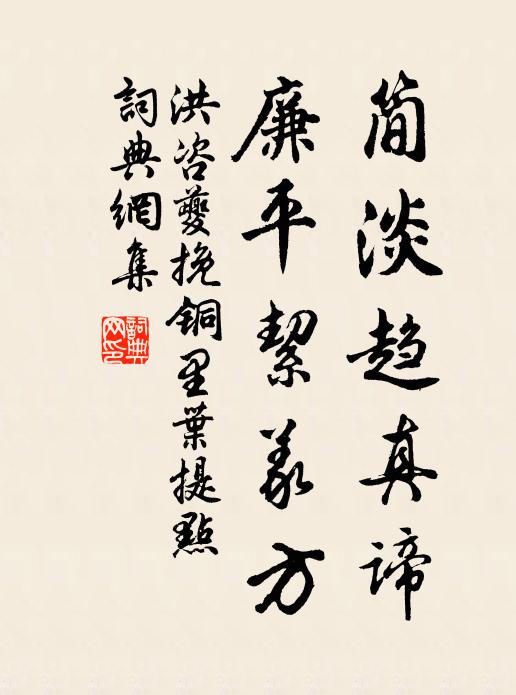 簡淡趋真諦
廉平絜義方
洪咨夔挽铜里葉提點
詞典網集
詞典网印